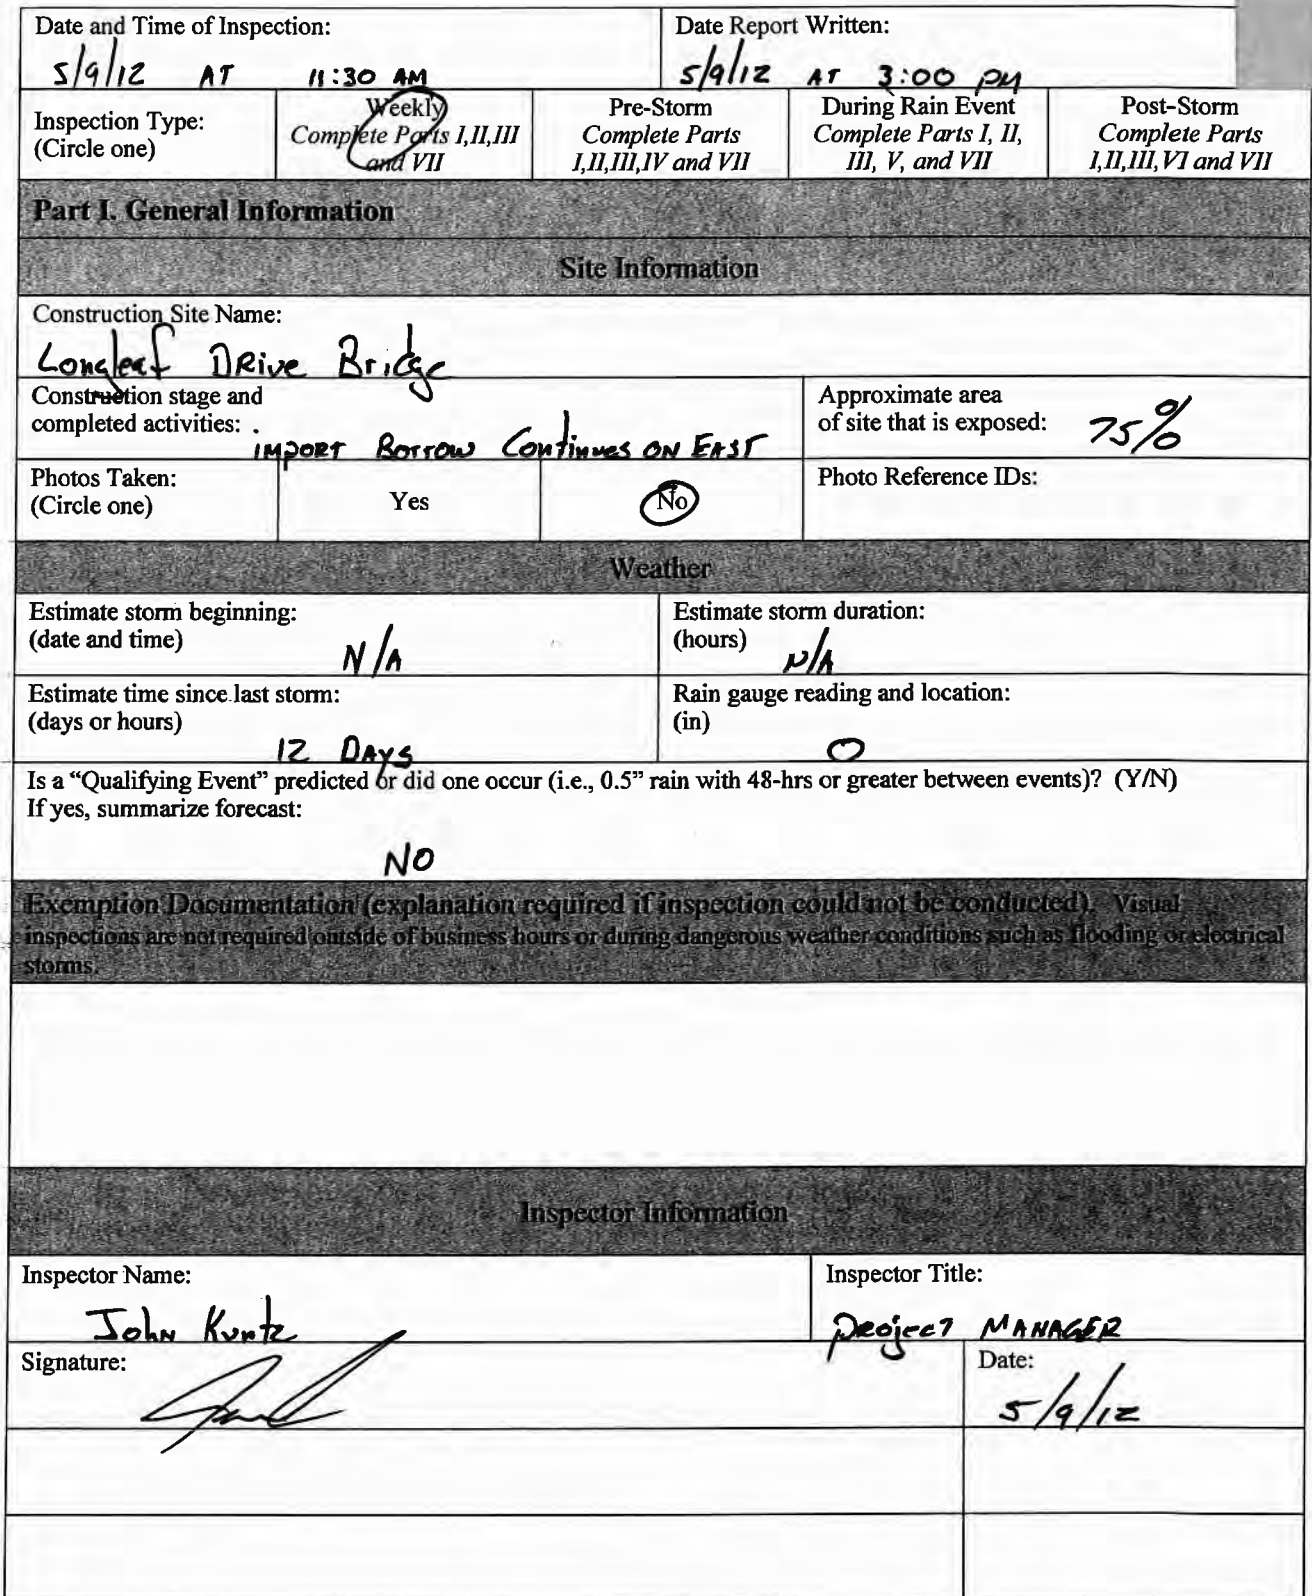 Date and Time of Inspection:
5/9/12 AT 11:30 AM
Date Report Written:
5/9/12 AT 3:00 PM
Inspection Type:
(Circle one)
Weekly
Complete Parts I,II,III
and VII
Pre-Storm
Complete Parts
I,II,III,IV and VII
During Rain Event
Complete Parts I, II,
III, V, and VII
Post-Storm
Complete Parts
I,II,III,VI and VII
Part I. General Information
Site Information
Construction Site Name:
Longleaf DRive Bridge
Construction stage and
completed activities: .
IMPORT Borrow Continues ON EAST
Approximate area
of site that is exposed:
75%
Photos Taken:
(Circle one)
Yes
No
Photo Reference IDs:
Weather
Estimate storm beginning:
(date and time)
N/A
Estimate storm duration:
(hours)
N/A
Estimate time since last storm:
(days or hours)
12 DAYS
Rain gauge reading and location:
(in)
0
Is a “Qualifying Event” predicted or did one occur (i.e., 0.5” rain with 48-hrs or greater between events)? (Y/N)
If yes, summarize forecast:
NO
Exemption Documentation (explanation required if inspection could not be conducted). Visual
inspections are not required outside of business hours or during dangerous weather conditions such as flooding or electrical
storms.
Inspector Information
Inspector Name:
John Kuntz
Inspector Title:
Project MANAGER
Signature:
Date:
5/9/12